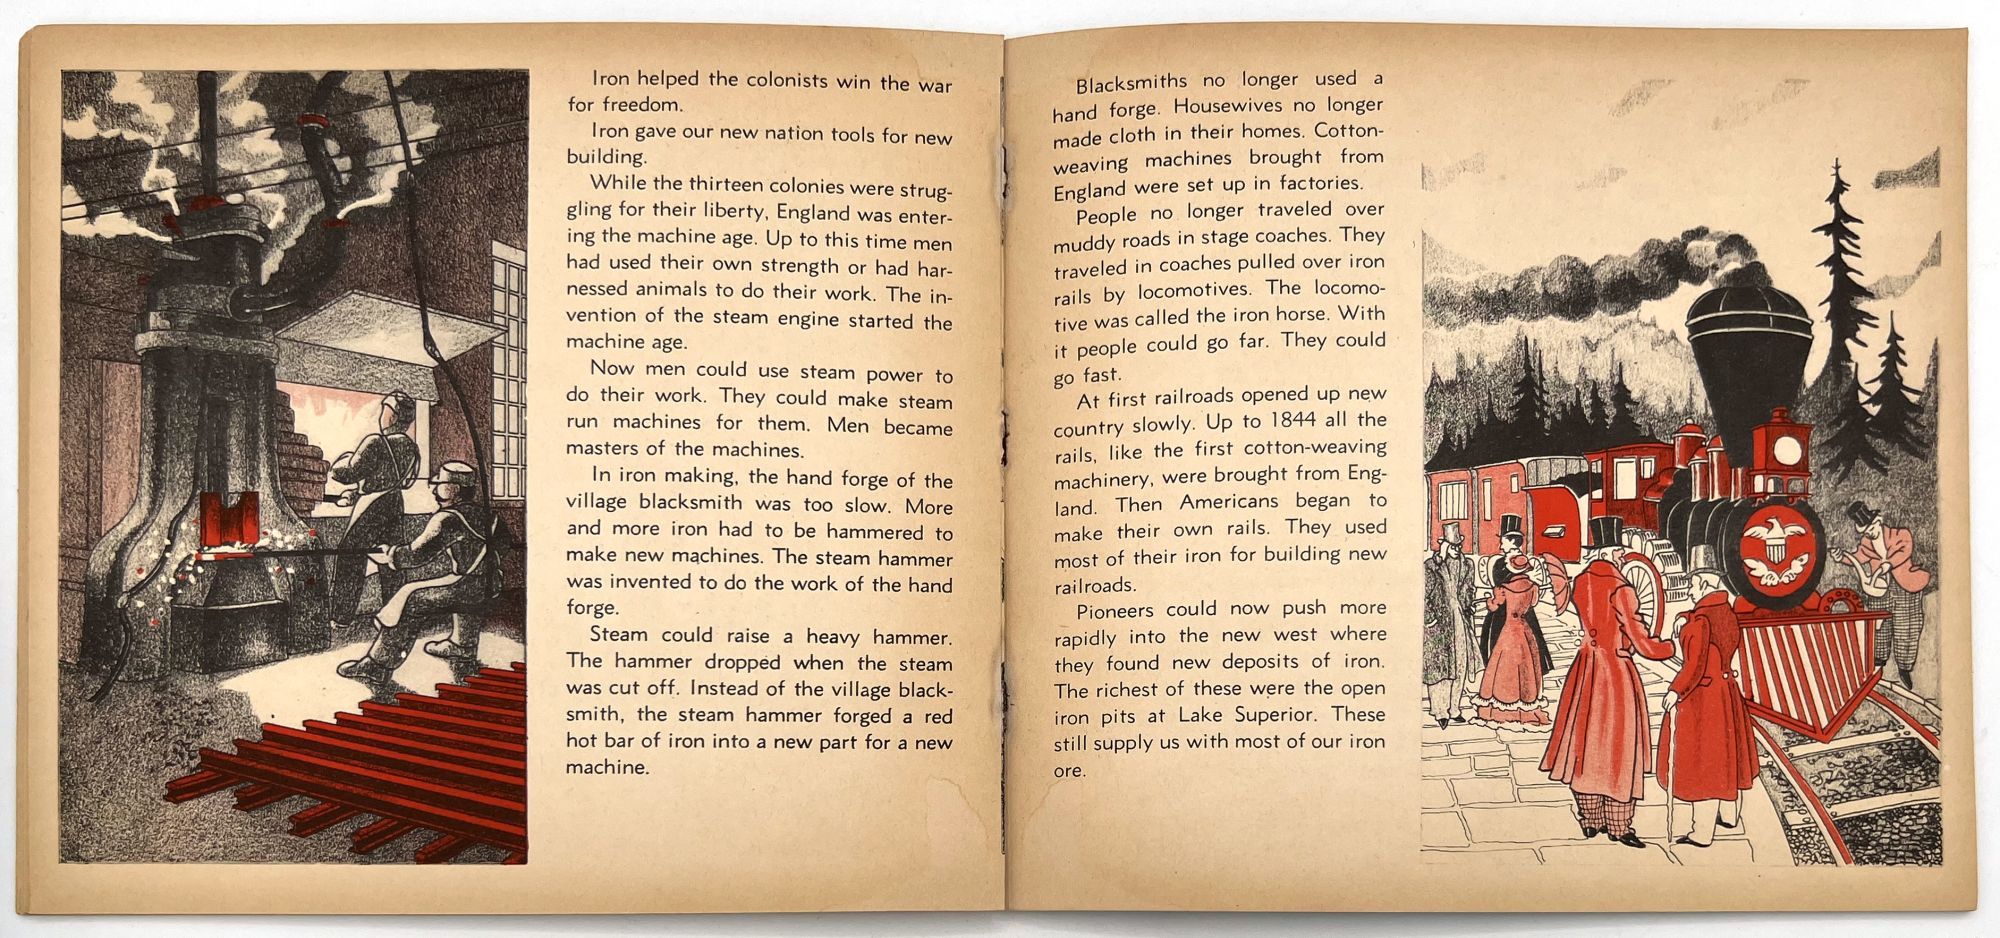 Iron helped the colonists win the war
for freedom.
Iron gave our new nation tools for new
building.
While the thirteen colonies were strug-
gling for their liberty, England was enter-
ing the machine age. Up to this time men
had used their own strength or had har-
nessed animals to do their work. The in-
vention of the steam engine started the
machine age.
Now men could use steam power to
do their work. They could make steam
run machines for them. Men became
masters of the machines.
In iron making, the hand forge of the
village blacksmith was too slow. More
and more iron had to be hammered to
make new machines. The steam hammer
was invented to do the work of the hand
forge.
Steam could raise a heavy hammer.
The hammer dropped when the steam
was cut off. Instead of the village black-
smith, the steam hammer forged a red
hot bar of iron into a new part for a new
machine.
Blacksmiths no longer used a
hand forge. Housewives no longer
made cloth in their homes. Cotton-
weaving machines brought from
England were set up in factories.
People no longer traveled over
muddy roads in stage coaches. They
traveled in coaches pulled over iron
rails by locomotives. The locomo-
tive was called the iron horse. With
it people could go far. They could
go fast.
At first railroads opened up new
country slowly. Up to 1844 all the
rails, like the first cotton-weaving
machinery, were brought from Eng-
land. Then Americans began to
make their own rails. They used
most of their iron for building new
railroads.
Pioneers could now push more
rapidly into the new west where
they found new deposits of iron.
The richest of these were the open
iron pits at Lake Superior. These
still supply us with most of our iron
ore.